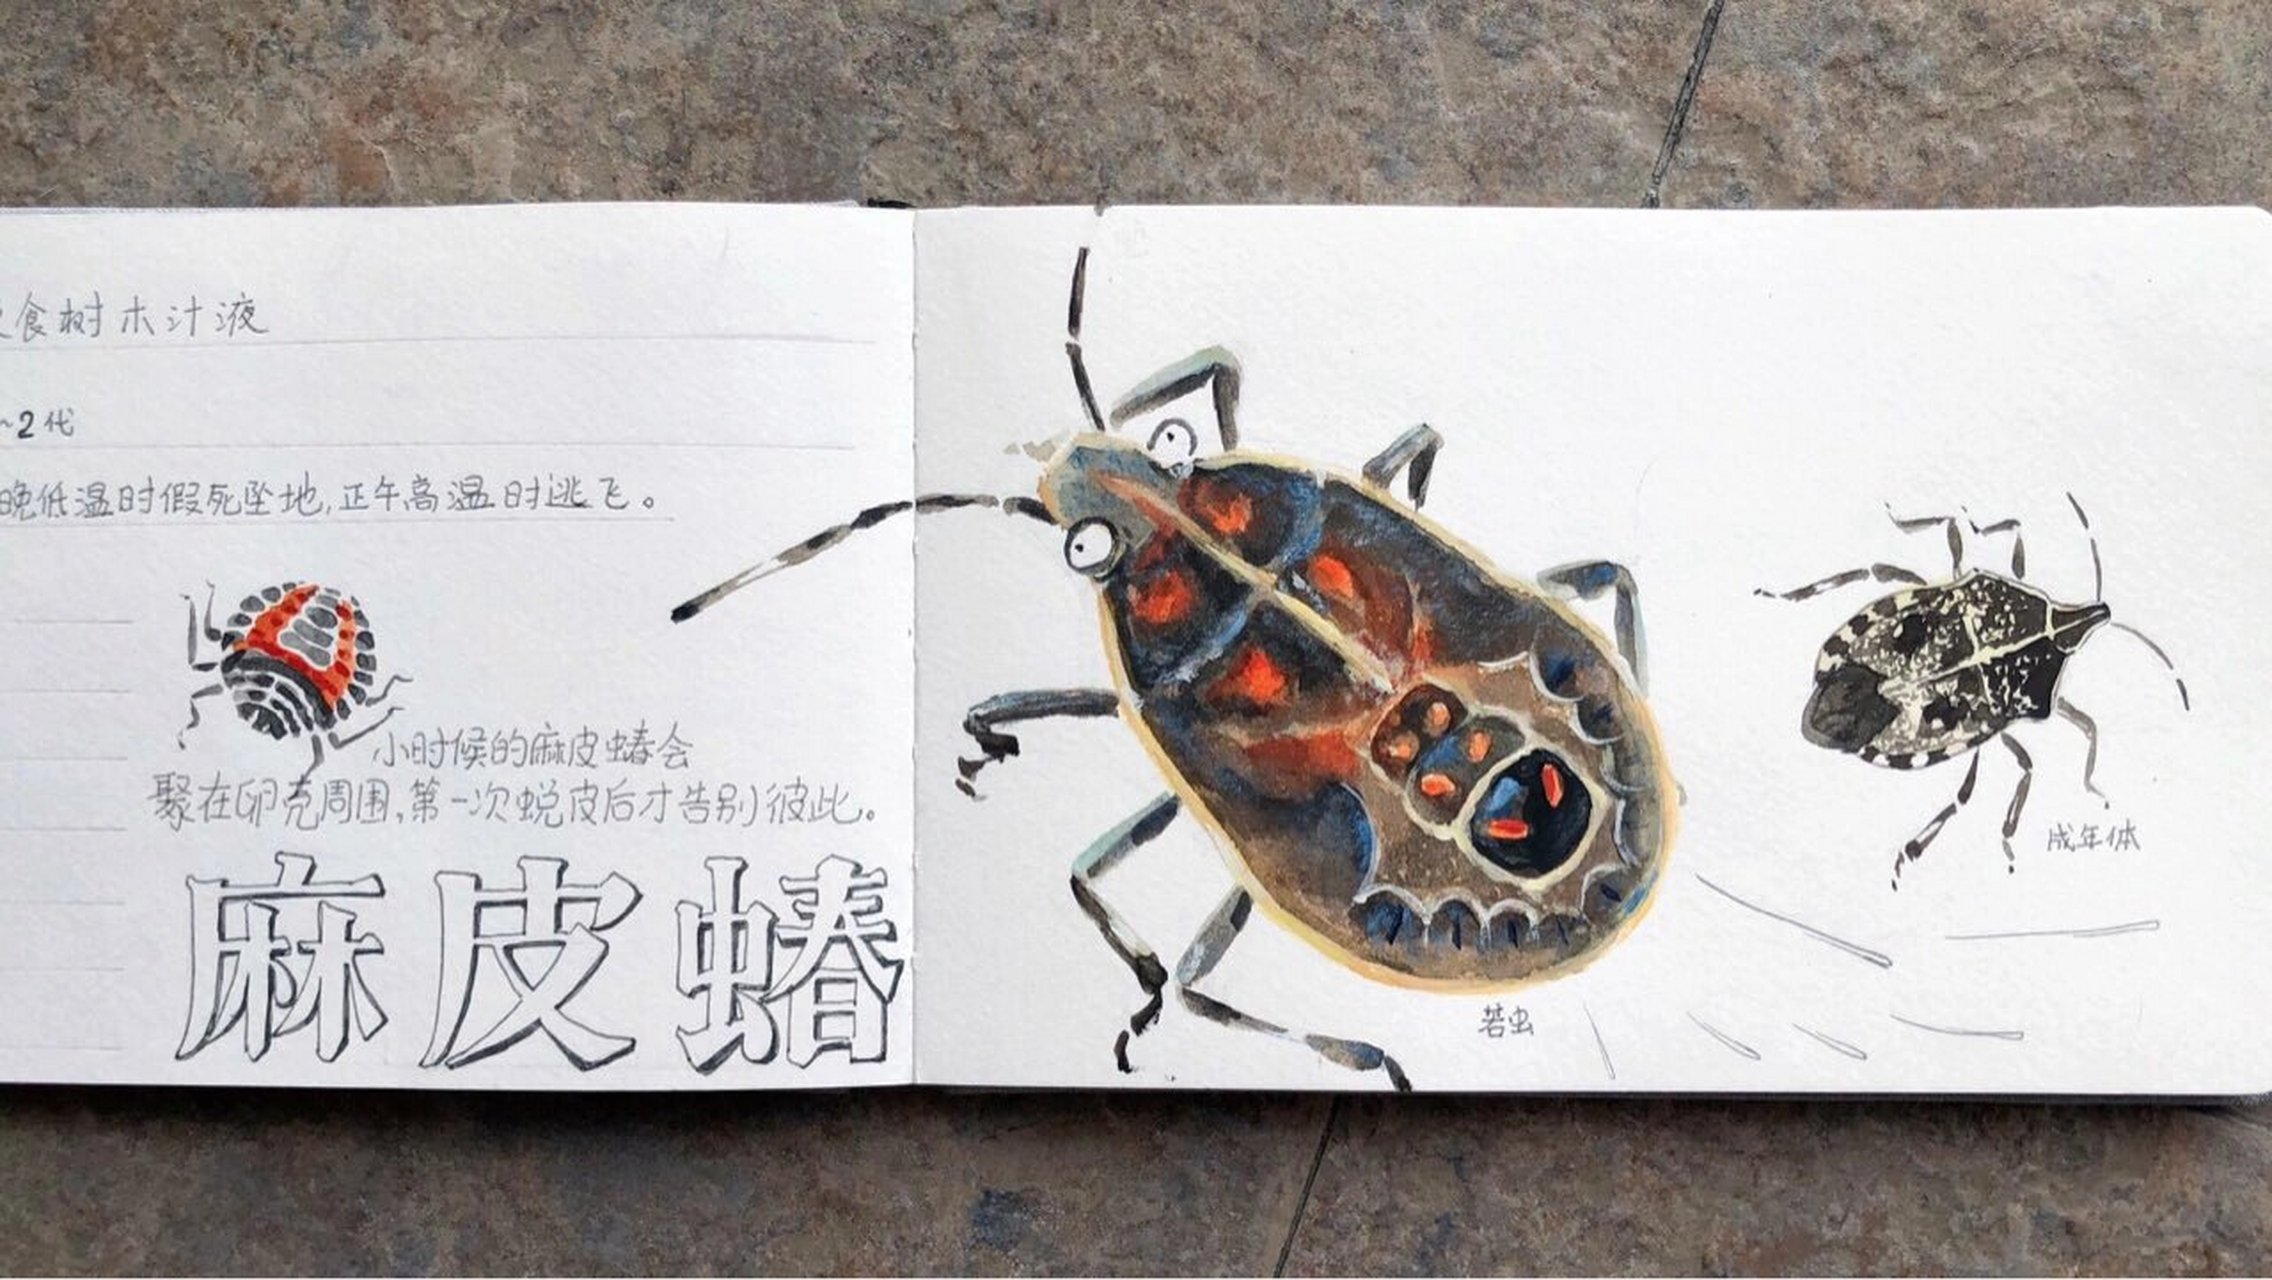 食树木汁液
~2代
晚低温时假死坠地,正午高温时逃飞。
小时候的麻皮蝽会
聚在卵壳周围,第一次蜕皮后才告别彼此。
麻皮蝽
若虫
成年体